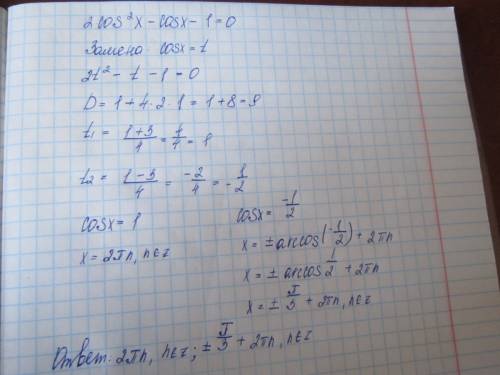 2cos²x - cosx - 1 = 0
Замена cosx = t
2t² - t - 1 = 0
D = 1 + 4·2·1 = 1 + 8 = 9
t₁ = (1+3)/4 = 4/4 = 1
t₂ = (1-3)/4 = -2/4 = -1/2
cosx = 1
x = 2πn, n∈z
cosx = -1/2
x = ± arccos(-1/2) + 2πn
x = ± arccos 1/2 + 2πn
x = ± π/3 + 2πn, n∈z
Ответ: 2πn, n∈z; ± π/3 + 2πn, n∈z